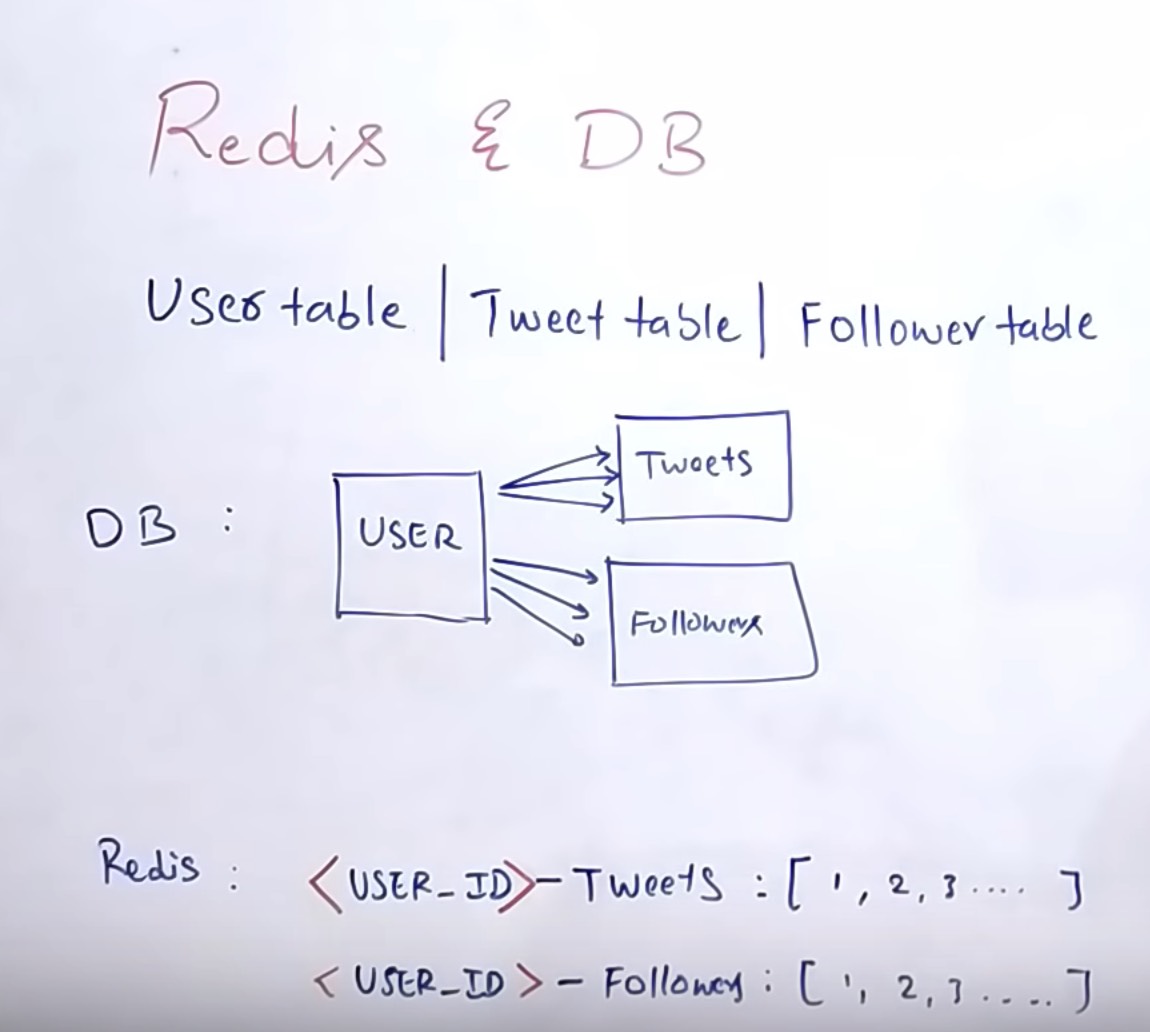 Redis & DB
User table | Tweet table | Follower table
Tweets
DB : USER
Followers
Redis : <USER_ID>-Tweets : [ 1, 2, 3 .... ]
<USER_ID> - Followers : [ 1, 2, 3 ..... ]